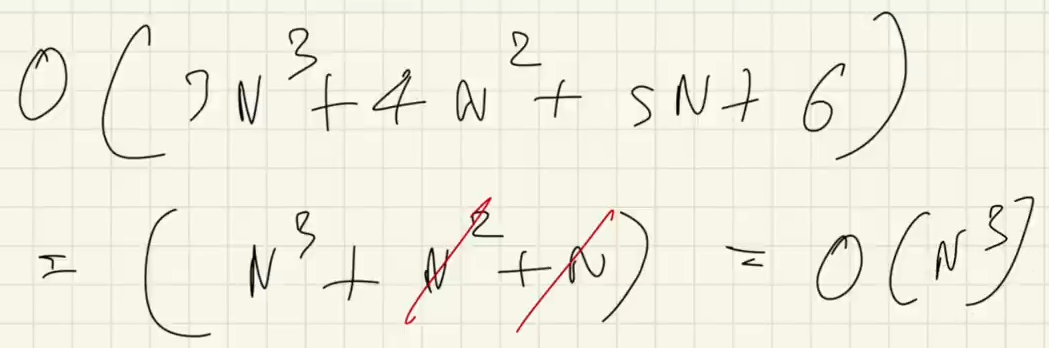 O(3N³+4N²+5N+6)
=(N³+N²+N)=O(N³)